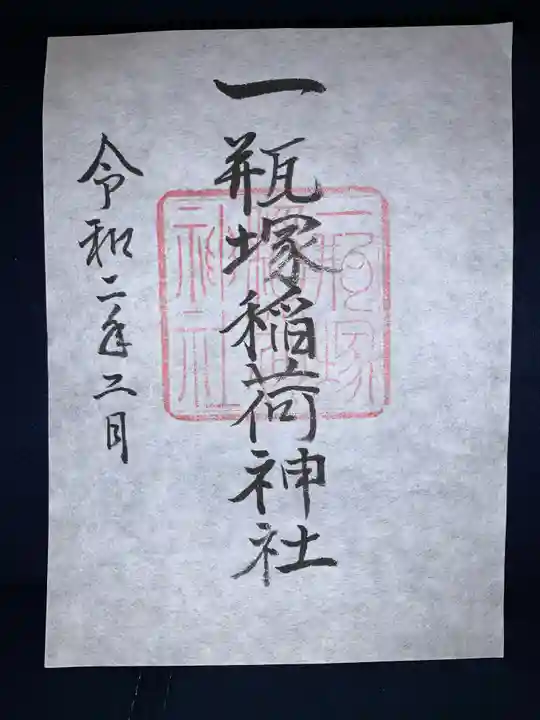 一瓶塚稲荷神社
令和二年二月
一瓶塚
稲荷
神社